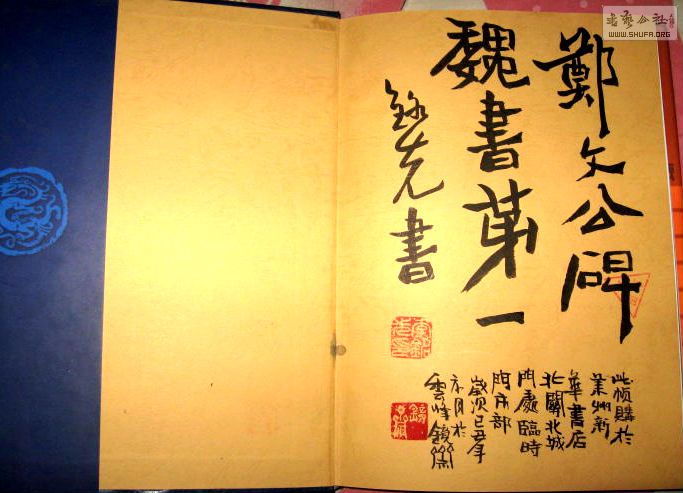 鄭文公碑
魏書第一
先書
此幀購於
州新
華書店
北關北城
門處臨時
門市部
歲次己丑年
月於
雲峰
WWW.SHUFA.ORG